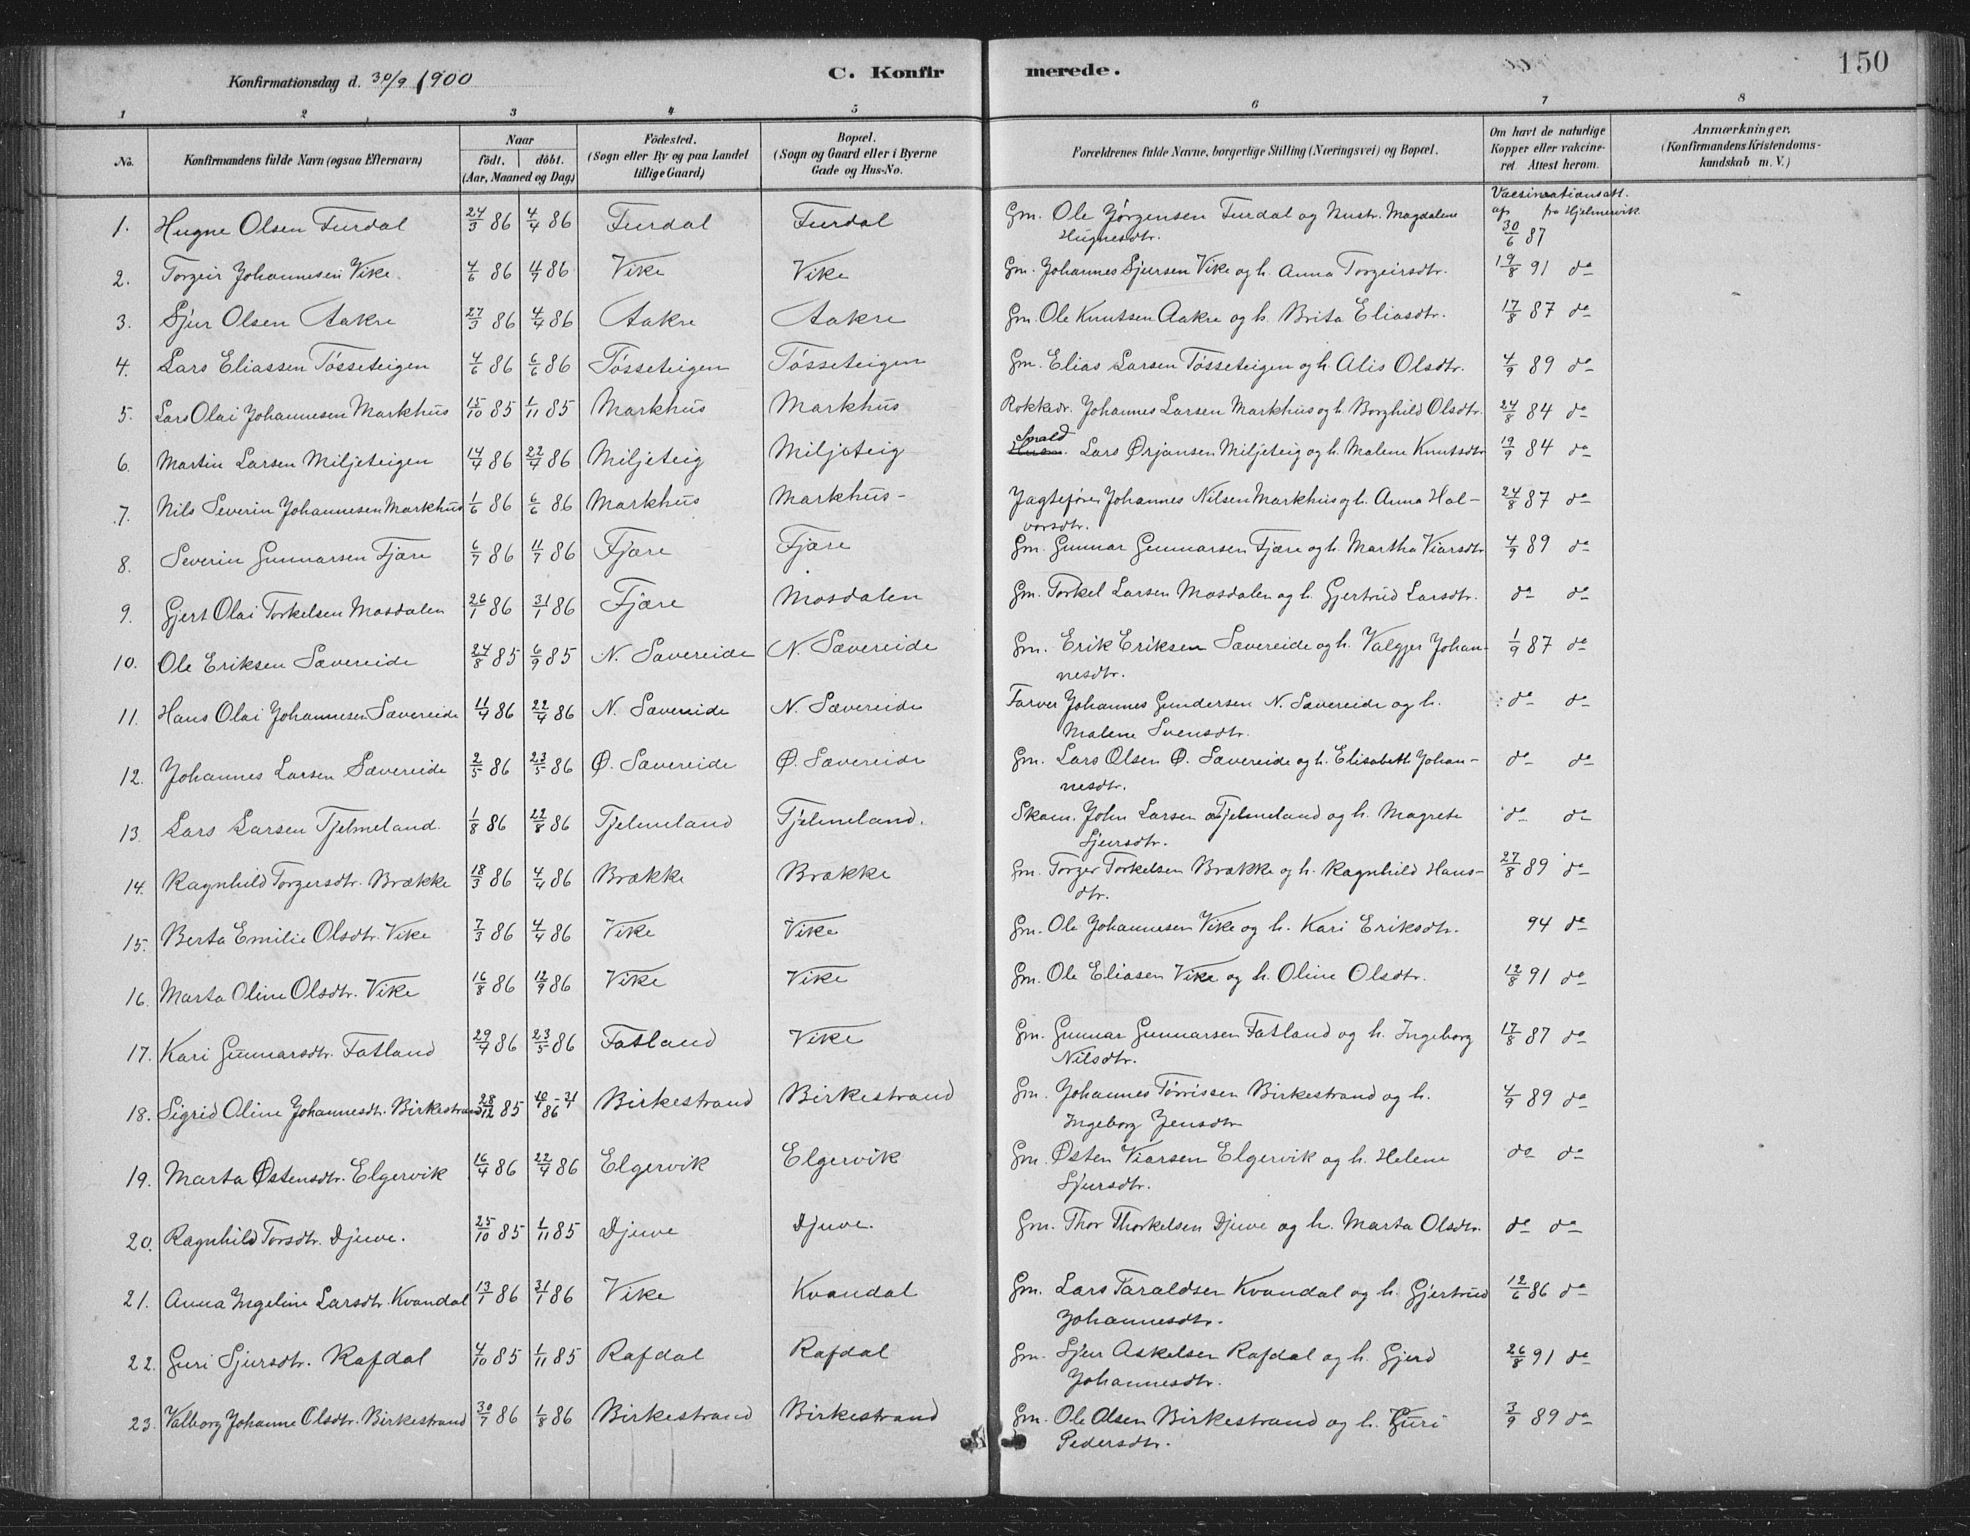 Konfirmationsdag d. 30/9 1900 C. Konfir merede. 150
1 2 3 4 5 6 7 8
No. Konfirmandens fulde Navn (ogsaa Efternavn) Naar födt. döbt. (Aar, Maaned og Dag) Födested. (Sogn eller By og paa Landet tillige Gaard) Bopæl. (Sogn og Gaard eller i Byerne Gade og Hus-No. Forældrenes fulde Navne, borgerlige Stilling (Næringsvei) og Bopæl. Om havt de naturlige Kopper eller vakcineret Attest herom. Anmærkninger. (Konfirmandens Kristendomskundskab m. V.)
Vaccinationsatt. af fra Hjelmervik
1. Hugne Olsen Furdal 24/3 86 4/4 86 Furdal Furdal Gm. Ole Jørgensen Furdal og Hustr. Magdalene 30/6 87
Hugnesdtr.
2. Torgeir Johannesen Vike. 4/6 86 86 Vike Vike Gm. Johannes Sjursen Vike og h. Anna Torgeirsdtr. 19/8 91 do
3. Sjur Olsen Aakre 27/3 86 4/4 86 Aakre Aakre Gm. Ole Knutsen Aakre og h. Brita Eliasdtr. 17/8 87 do
4. Lars Eliassen Tøsseteigen 4/6 86 6/6 86 Tøsseteigen Tøsseteigen Gm. Elias Larsen Tøsseteigen og h. Alis Olsdtr. 4/9 89 do
5. Lars Olai Johannesen Markhus 15/10 85 1/11 85 Markhus Markhus Rokkedr. Johannes Larsen Markhus og h. Borghild Olsdtr. 24/8 84 do
6. Martin Larsen Miljeteigen 14/4 86 22/4 86 Miljeteig Miljeteig Lars Ørjansen Miljeteig og h. Malene Knutsdtr 19/9 84 do
7. Nils Severin Johannesen Markhus 1/6 86 6/6 86 Markhus Markhus- Jagtefører Johannes Nilsen Markhus og h. Anna Hal-
vorsdtr. 24/8 87 do
8. Severin Gunnarsen Fjære 6/7 86 11/7 86 Fjære Fjære Gm. Gunnar Gunnarsen Fjære og h. Martha Viarsdtr 4/9 89 do
9. Gjert Olai Torkelsen Mosdalen 26/1 86 31/1 86 Fjære Mosdalen Gm. Torkel Larsen Mosdalen og h. Gjertrud Larsdtr. do do
10. Ole Eriksen Sævereide 24/8 85 6/9 85 N. Sævereide N. Sævereide Gm. Erik Eriksen Sævereide og h. Valgjer Johan-
nesdtr. 1/9 87 do
11. Hans Olai Johannesen Sævereide 11/4 86 22/4 86 N. Sævereide N. Sævereide Farver Johannes Gundersen N. Sævereide og h. do do
Malene Svensdtr.
12. Johannes Larsen Sævereide 2/5 86 23/5 86 Ø. Sævereide Ø. Sævereide Gm. Lars Olsen Ø. Sævereide og h. Elisabeth Johan-
nesdtr. do do
13 Lars Larsen Tjelmeland. 1/8 86 22/8 86 Tjelmeland Tjelmeland. Skom. John Larsen Tjelmeland og h. Magrete do do
Sjursdtr.
14. Ragnhild Torgersdtr. Brække 18/3 86 4/4 86 Brække Brække Gm. Torger Torkelsen Brække og h. Ragnhild Hans-
dtr. 27/8 89 do
15. Berta Emilie Olsdtr. Vike 7/3 86 4/4 86 Vike Vike Gm. Ole Johannesen Vike og h. Kari Eriksdtr. 94 do
16. Marta Oline Olsdtr. Vike 16/8 86 12/9 86 Vike Vike Gm. Ole Eliasen Vike og h. Oline Olsdtr. 12/8 91 do
17. Kari Gunnarsdtr. Fatland 29/4 86 23/5 86 Fatland Vike Gm. Gunnar Gunnarsen Fatland og h. Ingeborg 17/8 87 do
Nilsdtr.
18. Sigrid Oline Johannesdtr. Birkestrand 28/12 85 86 Birkestrand Birkestrand Gm. Johannes Tørrissen Birkestrand og h. 4/9 89 do
Ingeborg Jensdtr
19. Marta Østensdtr. Elgervik 16/4 86 22/4 86 Elgervik Elgervik Gm. Østen Viarsen Elgervik og h. Helene do do
Sjursdtr.
20. Ragnhild Torsdtr. Djuve. 25/10 85 1/11 85 Djuve Djuve. Gm. Thor Thorkelsen Djuve og h. Marta Olsdtr. do do
21. Anna Ingeline Larsdtr. Kvandal 13/1 86 31/1 86 Vike Kvandal Gm. Lars Taraldsen Kvandal og h. Gjertrud 12/6 86 do
Johannesdtr.
22. Guri Sjursdtr. Rafdal 4/10 85 1/11 85 Rafdal Rafdal Gm. Sjur Askelsen Rafdal og h. Gjerd 26/8 91 do
Johannesdtr.
23. Valborg Johanne Olsdtr. Birkestrand 30/7 86 1/8 86 Birkestrand Birkestrand Gm. Ole Olsen Birkestrand og h. Guri 3/9 89 do
Pedersdtr.